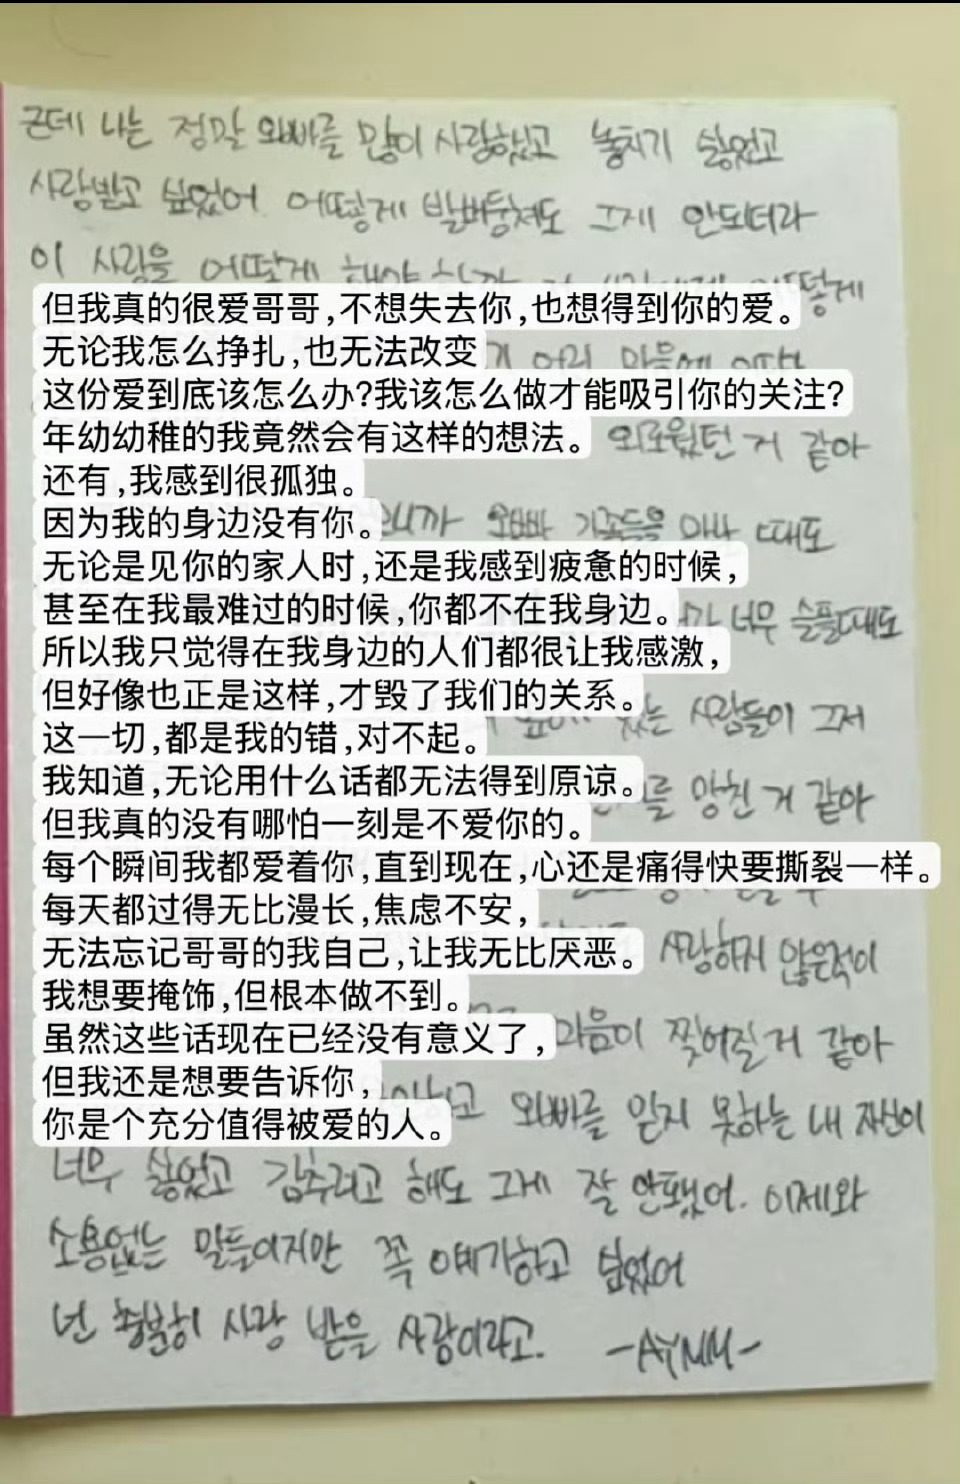 근데 나는 정말 오빠를 많이 사랑했고 놓치기 싫었고
사랑받고 싶었어. 어떻게 발버둥쳐도 그게 안되더라
이 사랑을 어떻게 해야 할까 어떻게
但我真的很爱哥哥,不想失去你,也想得到你的爱。
无论我怎么挣扎,也无法改变
这份爱到底该怎么办?我该怎么做才能吸引你的关注?
年幼幼稚的我竟然会有这样的想法。 외로웠던 거 같아
还有,我感到很孤独。
因为我的身边没有你。 오빠 가족들을 만나 때도
无论是见你的家人时,还是我感到疲惫的时候,
甚至在我最难过的时候,你都不在我身边。 너무 슬플때도
所以我只觉得在我身边的人们都很让我感激,
但好像也正是这样,才毁了我们的关系。 있는 사람들이 그저
这一切,都是我的错,对不起。
我知道,无论用什么话都无法得到原谅。 를 망친 거 같아
但我真的没有哪怕一刻是不爱你的。
每个瞬间我都爱着你,直到现在,心还是痛得快要撕裂一样。
每天都过得无比漫长,焦虑不安,
无法忘记哥哥的我自己,让我无比厌恶。 사랑하지 않은적이
我想要掩饰,但根本做不到。
虽然这些话现在已经没有意义了, 마음이 찢어질거 같아
但我还是想要告诉你,
你是个充分值得被爱的人。 오빠를 믿지 못하는 내 자신이
너무 싫었고 감추려고 해도 그게 잘 안됐어. 이제와
소용없는 말들이지만 꼭 얘기하고 싶었어
넌 충분히 사랑 받을 사람이라고. -AYMM-